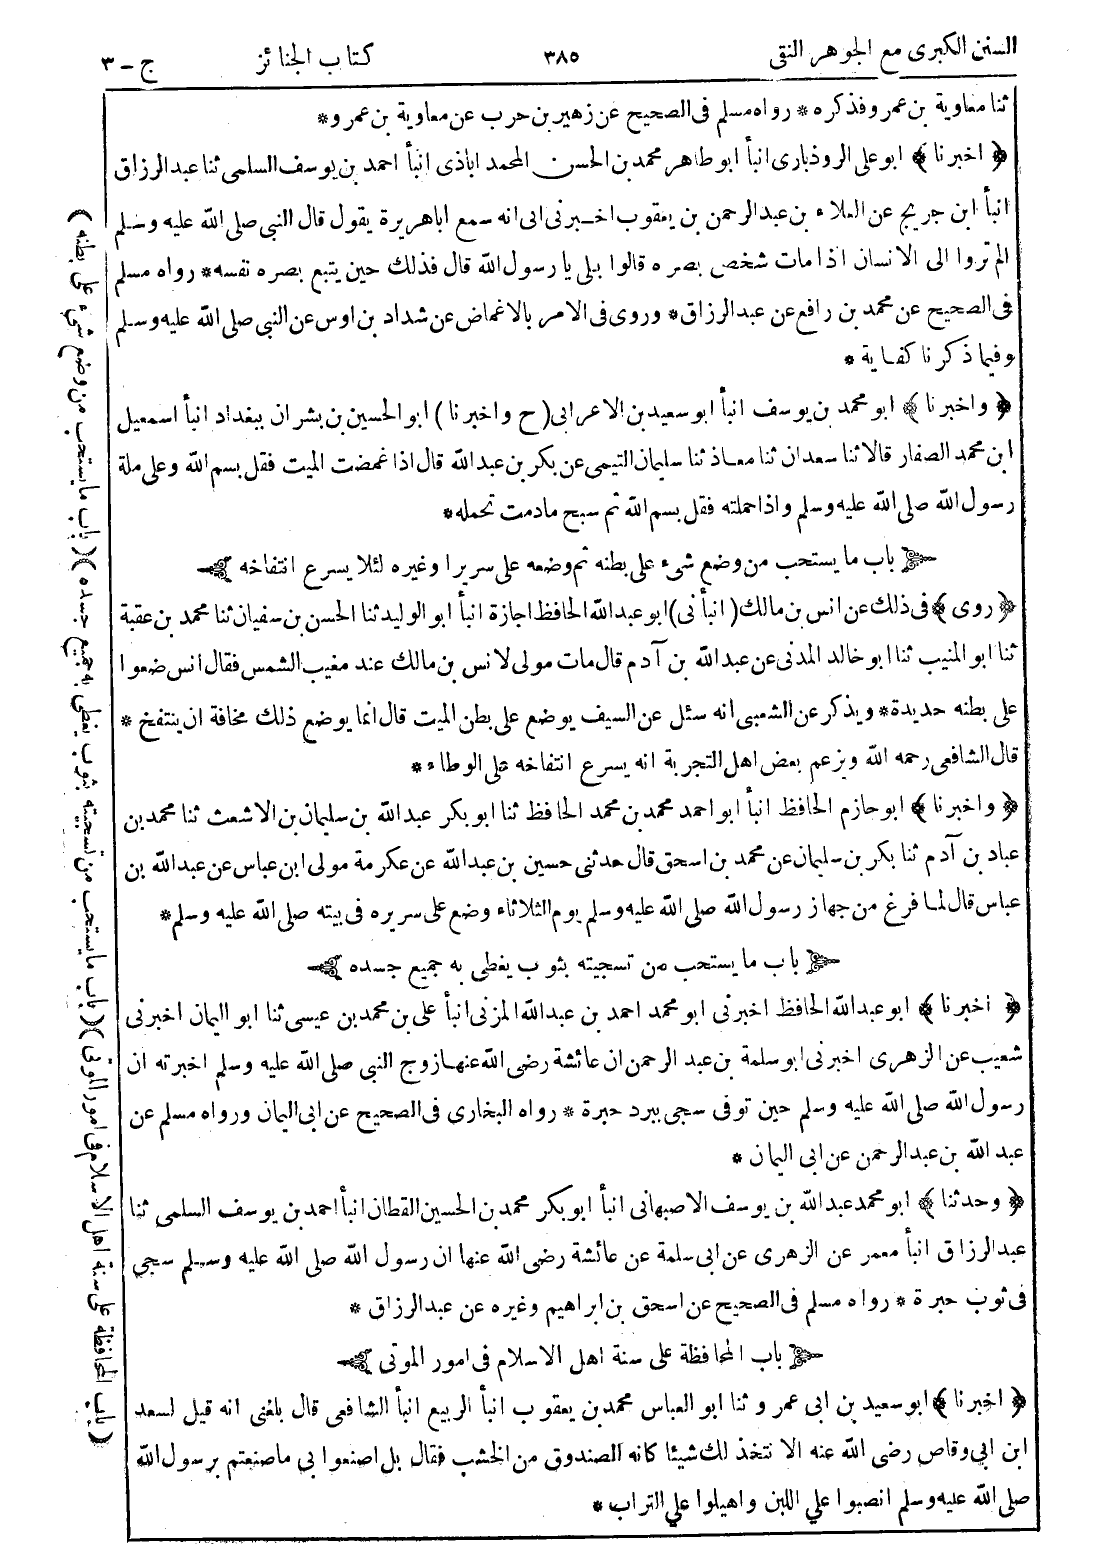 السنن الكبرى مع الجوهر النقى ٣٨٥ كتاب الجنائز ج - ٣
ثنا معاوية بن عمرو فذكره * رواه مسلم فى الصحيح عن زهير بن حرب عن معاوية بن عمرو *
﴿ اخبرنا ﴾ ابو على الروذبارى انبأ ابو طاهر محمد بن الحسن المحمد اباذى انبأ احمد بن يوسف السلمى ثنا عبد الرزاق
انبأ ابن جريج عن العلاء بن عبد الرحمن بن يعقوب اخبرنى ابى انه سمع ابا هريرة يقول قال النبي صلى الله عليه وسلم
الم تروا الى الانسان اذا مات شخص بصره قالوا بلى يا رسول الله قال فذلك حين يتبع بصره نفسه * رواه مسلم
فى الصحيح عن محمد بن رافع عن عبد الرزاق * وروى فى الامر بالاغماض عن شداد بن اوس عن النبي صلى الله عليه وسلم
وفيما ذكرنا كفاية *
﴿ واخبرنا ﴾ ابو محمد بن يوسف انبأ ابو سعيد بن الاعرابى ( ح واخبرنا ) ابو الحسين بن بشران ببغداد انبأ اسمعيل
ابن محمد الصفار قالا ثنا سعدان ثنا معاذ ثنا سليمان التيمى عن بكر بن عبد الله قال اذا غمضت الميت فقل بسم الله وعلى ملة
رسول الله صلى الله عليه وسلم واذا حملته فقل بسم الله ثم سبح ما دمت تحمله *
﴿ باب ما يستحب من وضع شىء على بطنه ثم وضعه على سرير او غيره لئلا يسرع انتفاخه ﴾
﴿ روى ﴾ فى ذلك عن انس بن مالك ( انبأنى ) ابو عبد الله الحافظ اجازة انبأ ابو الوليد ثنا الحسن بن سفيان ثنا محمد بن عقبة
ثنا ابو المنيب ثنا ابو خالد المدنى عن عبد الله بن آدم قال مات مولى لانس بن مالك عند مغيب الشمس فقال انس ضعوا
على بطنه حديدة * ويذكر عن الشعبى انه سئل عن السيف يوضع على بطن الميت قال انما يوضع ذلك مخافة ان ينتفخ *
قال الشافعى رحمه الله ويزعم بعض اهل التجربة انه يسرع انتفاخه على الوطاء *
﴿ واخبرنا ﴾ ابو حازم الحافظ انبأ ابو احمد محمد بن محمد الحافظ ثنا ابو بكر عبد الله بن سليمان بن الاشعث ثنا محمد بن
عباد بن آدم ثنا بكر بن سليمان عن محمد بن اسحق قال حدثنى حسين بن عبد الله عن عكرمة مولى ابن عباس عن عبد الله بن
عباس قال لما فرغ من جهاز رسول الله صلى الله عليه وسلم يوم الثلاثاء وضع على سريره فى بيته صلى الله عليه وسلم *
﴿ باب ما يستحب من تسجيته بثوب يغطى به جميع جسده ﴾
﴿ اخبرنا ﴾ ابو عبد الله الحافظ اخبرنى ابو محمد احمد بن عبد الله المزنى انبأ على بن محمد بن عيسى ثنا ابو اليمان اخبرنى
شعيب عن الزهرى اخبرنى ابو سلمة بن عبد الرحمن ان عائشة رضى الله عنها زوج النبي صلى الله عليه وسلم اخبرته ان
رسول الله صلى الله عليه وسلم حين توفى سجى ببرد حبرة * رواه البخارى فى الصحيح عن ابى اليمان ورواه مسلم عن
عبد الله بن عبد الرحمن عن ابى اليمان *
﴿ وحدثنا ﴾ ابو محمد عبد الله بن يوسف الاصبهانى انبأ ابو بكر محمد بن الحسين القطان انبأ احمد بن يوسف السلمى ثنا
عبد الرزاق انبأ معمر عن الزهرى عن ابى سلمة عن عائشة رضى الله عنها ان رسول الله صلى الله عليه وسلم سجي
فى ثوب حبرة * رواه مسلم فى الصحيح عن اسحق بن ابراهيم وغيره عن عبد الرزاق *
﴿ باب المحافظة على سنة اهل الاسلام فى امور الموتى ﴾
﴿ اخبرنا ﴾ ابو سعيد بن ابى عمرو ثنا ابو العباس محمد بن يعقوب انبأ الربيع انبأ الشافعى قال بلغنى انه قيل لسعد
ابن ابي وقاص رضى الله عنه الا نتخذ لك شيئا كانه الصندوق من الخشب فقال بل اصنعوا بي ما صنعتم برسول الله
صلى الله عليه وسلم انصبوا علي اللبن واهيلوا علي التراب *
( باب ما يستحب من وضع شىء على بطنه )
( باب ما يستحب من تسجيته بثوب يغطى به جميع جسده )
( باب المحافظة على سنة اهل الاسلام فى امور الموتى )